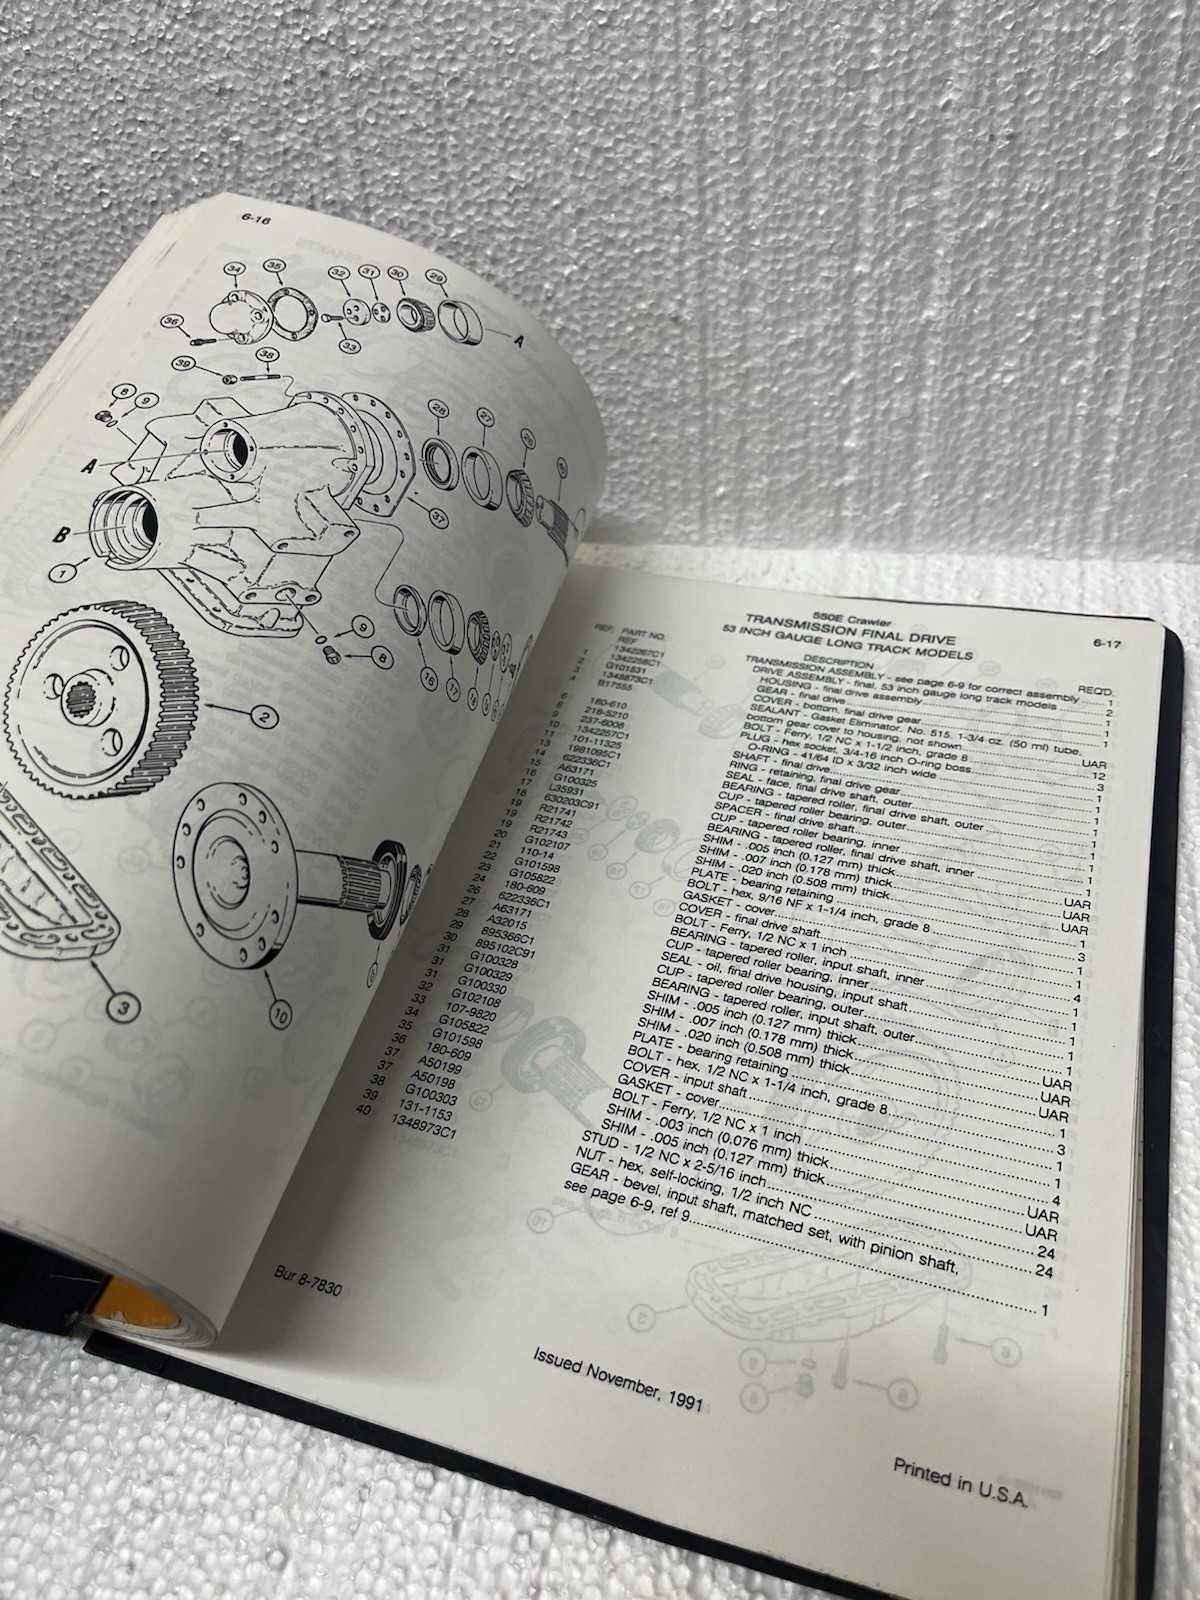 6-16
34
35
32
31
30
29
36
33
A
39
38
8
9
28
27
26
A
B
37
1
9
8
16
17
18
2
3
10
550E Crawler
TRANSMISSION FINAL DRIVE
53 INCH GAUGE LONG TRACK MODELS
6-17
REF. PART NO. DESCRIPTION REQ'D.
REF TRANSMISSION ASSEMBLY - see page 6-9 for correct assembly 1
1342267C1 DRIVE ASSEMBLY - final, 53 inch gauge long track models 2
1 1342258C1 HOUSING - final drive assembly 1
2 G101531 GEAR - final drive 1
3 1348873C1 COVER - bottom, final drive gear 1
4 B17555 SEALANT - Gasket Eliminator, No. 515, 1-3/4 oz. (50 ml) tube,
bottom gear cover to housing, not shown UAR
6 180-610 BOLT - Ferry, 1/2 NC x 1-1/2 inch, grade 8 12
8 218-5210 PLUG - hex socket, 3/4-16 inch O-ring boss 3
9 237-6008 O-RING - 41/64 ID x 3/32 inch wide 1
10 1342257C1 SHAFT - final drive 1
11 101-11325 RING - retaining, final drive gear 1
13 1981095C1 SEAL - face, final drive shaft, outer 1
14 622336C1 BEARING - tapered roller, final drive shaft, outer 1
15 A63171 CUP - tapered roller bearing, outer 1
16 G100325 SPACER - final drive shaft 1
17 L35931 CUP - tapered roller bearing, inner 1
18 630203C91 BEARING - tapered roller, final drive shaft, inner 1
19 R21741 SHIM - .005 inch (0.127 mm) thick UAR
19 R21742 SHIM - .007 inch (0.178 mm) thick UAR
19 R21743 SHIM - .020 inch (0.508 mm) thick UAR
20 G102107 PLATE - bearing retaining 1
21 110-14 BOLT - hex, 9/16 NF x 1-1/4 inch, grade 8 3
22 G101598 GASKET - cover 1
23 G105822 COVER - final drive shaft 1
24 180-609 BOLT - Ferry, 1/2 NC x 1 inch 4
26 622336C1 BEARING - tapered roller, input shaft, inner 1
27 A63171 CUP - tapered roller bearing, inner 1
28 A32015 SEAL - oil, final drive housing, input shaft 1
29 895366C1 CUP - tapered roller bearing, outer 1
30 895102C91 BEARING - tapered roller, input shaft, outer 1
31 G100328 SHIM - .005 inch (0.127 mm) thick UAR
31 G100329 SHIM - .007 inch (0.178 mm) thick UAR
31 G100330 SHIM - .020 inch (0.508 mm) thick UAR
32 G102108 PLATE - bearing retaining 1
33 107-9820 BOLT - hex, 1/2 NC x 1-1/4 inch, grade 8 3
34 G105822 COVER - input shaft 1
35 G101598 GASKET - cover 1
36 180-609 BOLT - Ferry, 1/2 NC x 1 inch 4
37 A50199 SHIM - .003 inch (0.076 mm) thick UAR
37 A50198 SHIM - .005 inch (0.127 mm) thick UAR
38 G100303 STUD - 1/2 NC x 2-5/16 inch 24
39 131-1153 NUT - hex, self-locking, 1/2 inch NC 24
40 1348973C1 GEAR - bevel, input shaft, matched set, with pinion shaft,
see page 6-9, ref 9 1
Bur 8-7830
Issued November, 1991
Printed in U.S.A.